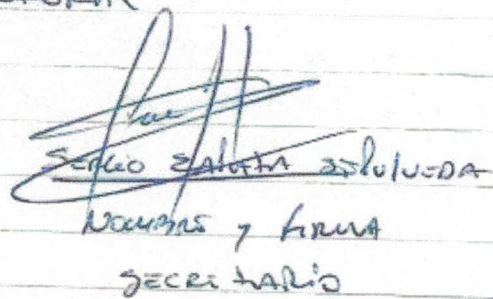 Sergio Sepulveda
Nombre y firma
Secretario